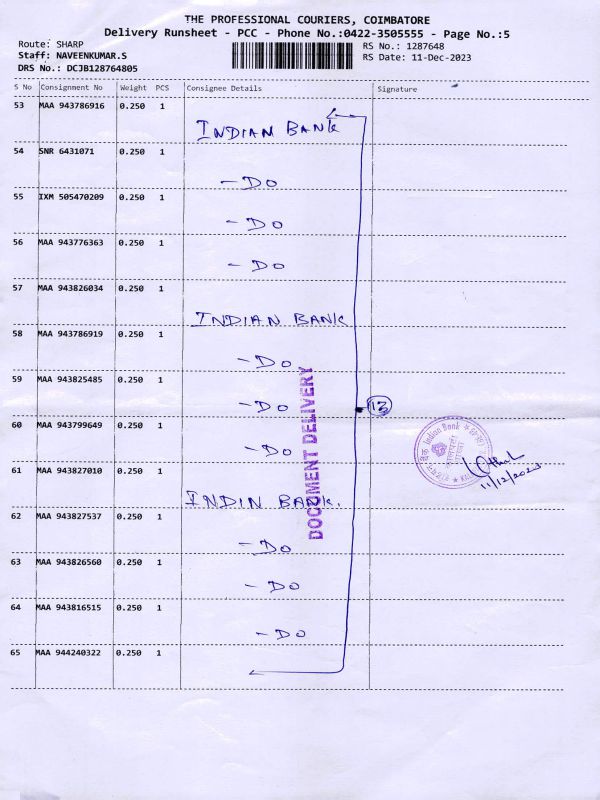 THE PROFESSIONAL COURIERS, COIMBATORE
Delivery Runsheet - PCC - Phone No.:0422-3505555 - Page No.:5
Route: SHARP
RS No.: 1287648
Staff: NAVEENKUMAR.S
RS Date: 11-Dec-2023
DRS No.: DCJB128764805
S No Consignment No Weight PCS Consignee Details Signature
53 MAA 943786916 0.250 1
INDIAN BANK
54 SNR 6431071 0.250 1
- DO
55 IXM 505470209 0.250 1
- DO
56 MAA 943776363 0.250 1
- DO
57 MAA 943826034 0.250 1
INDIAN BANK
58 MAA 943786919 0.250 1
- DO
59 MAA 943825485 0.250 1
- DO
13
60 MAA 943799649 0.250 1
- DO
61 MAA 943827010 0.250 1
INDIN BANK.
62 MAA 943827537 0.250 1
- DO
63 MAA 943826560 0.250 1
- DO
64 MAA 943816515 0.250 1
- DO
65 MAA 944240322 0.250 1
DOCUMENT DELIVERY
Indian Bank
11/12/2023